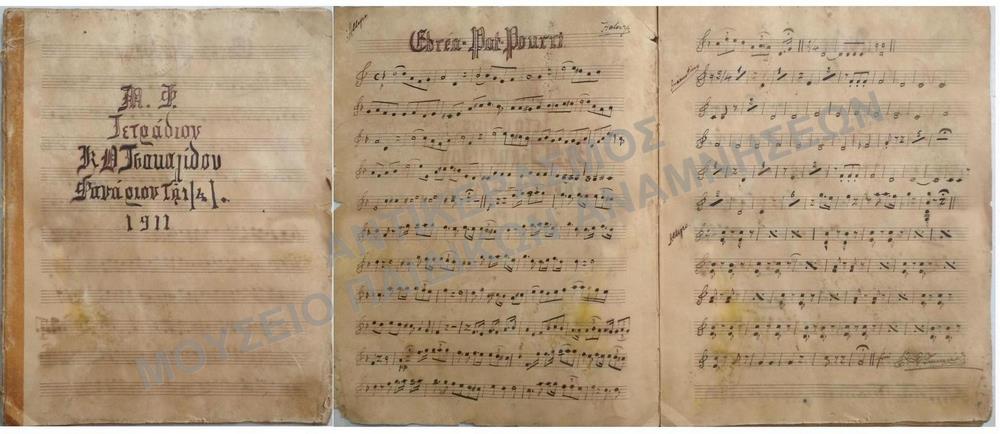 Μ. Φ.
Τετράδιον
Κ Θ Τσαμαλίδου
Φανάριον Τῇ 1/4/.
1911
Allegro
Ebrea-Pot-Pourri
Allegro
ΑΝΤΙΚΕΡΑΣΜΟΣ
ΜΟΥΣΕΙΟ ΠΑΙΔΙΚΩΝ ΑΝΑΜΝΗΣΕΩΝ